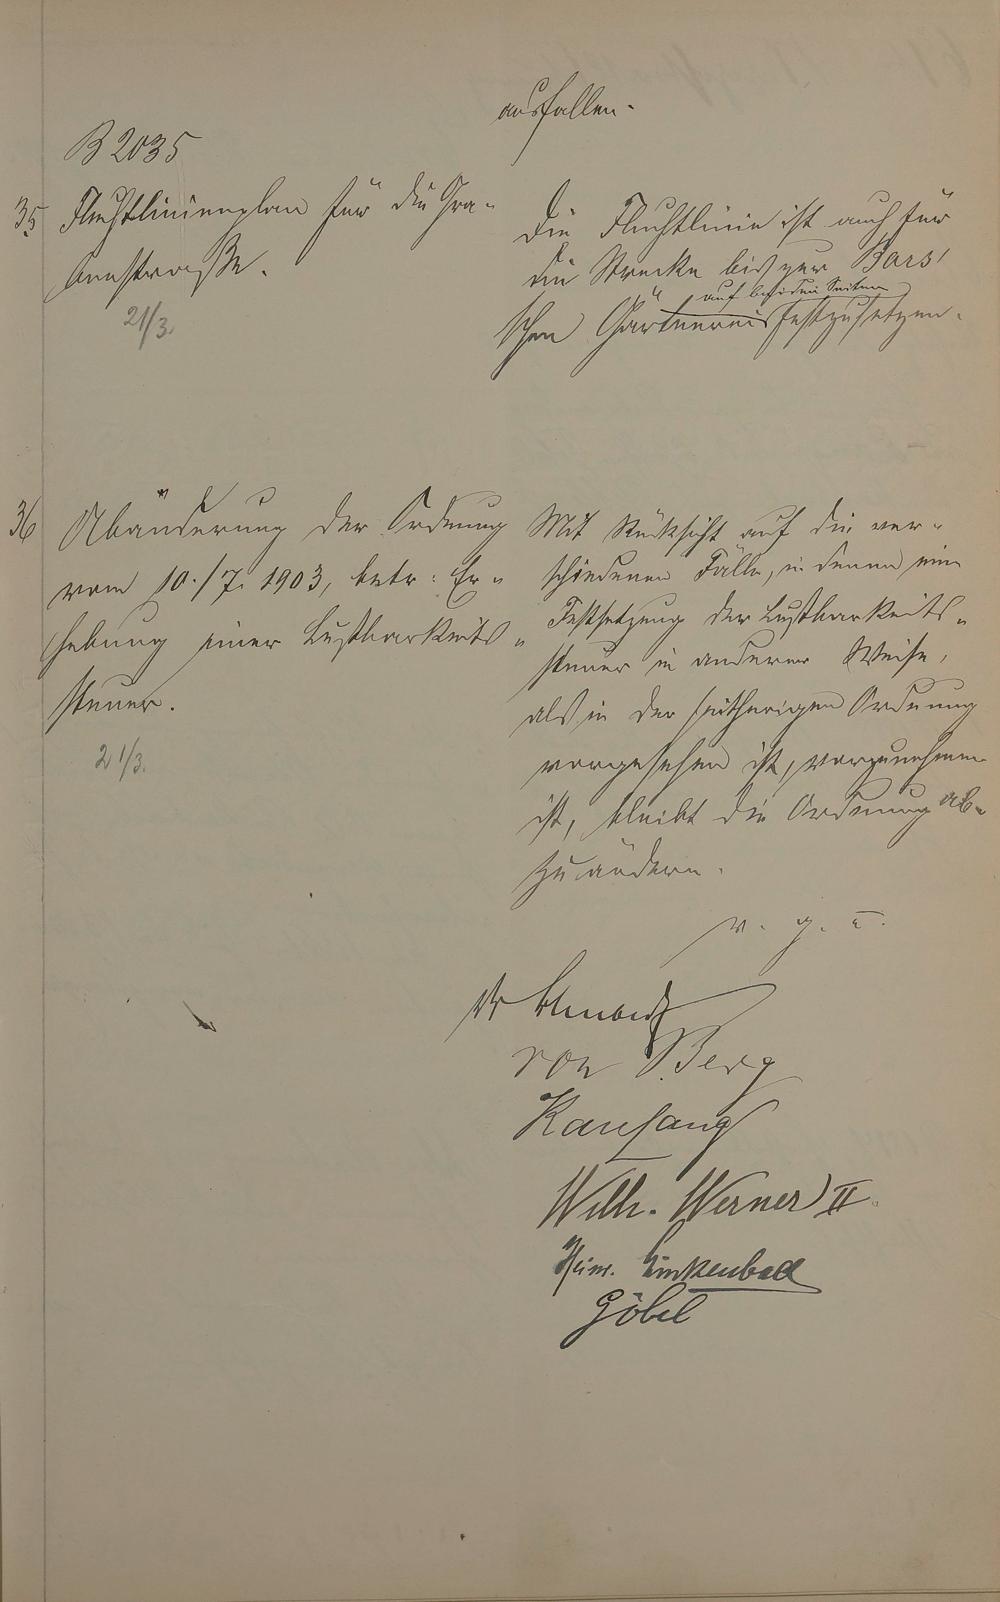 ausfallen.
B 2035
35 Fluchtlinienplan für die Gra-
benstraße.
21/3.
Die Fluchtlinie ist auch für
die Strecke bis zur Bars'
auf beiden Seiten
schen Gärtnerei festzusetzen.
36 Abänderung der Ordnung
vom 10./7. 1903, betr: Er-
hebung einer Lustbarkeits-
steuer.
21/3.
Mit Rücksicht auf die ver-
schiedenen Fälle, in denen eine
Festsetzung der Lustbarkeits-
steuer in anderer Weise,
als in der seitherigen Ordnung
vorgesehen ist, vorzunehmen
ist, bleibt die Ordnung ab-
zuändern.
v. g. u.
von Berg
Kaufang
Wilh. Werner II.
Linkenbach
Göbel